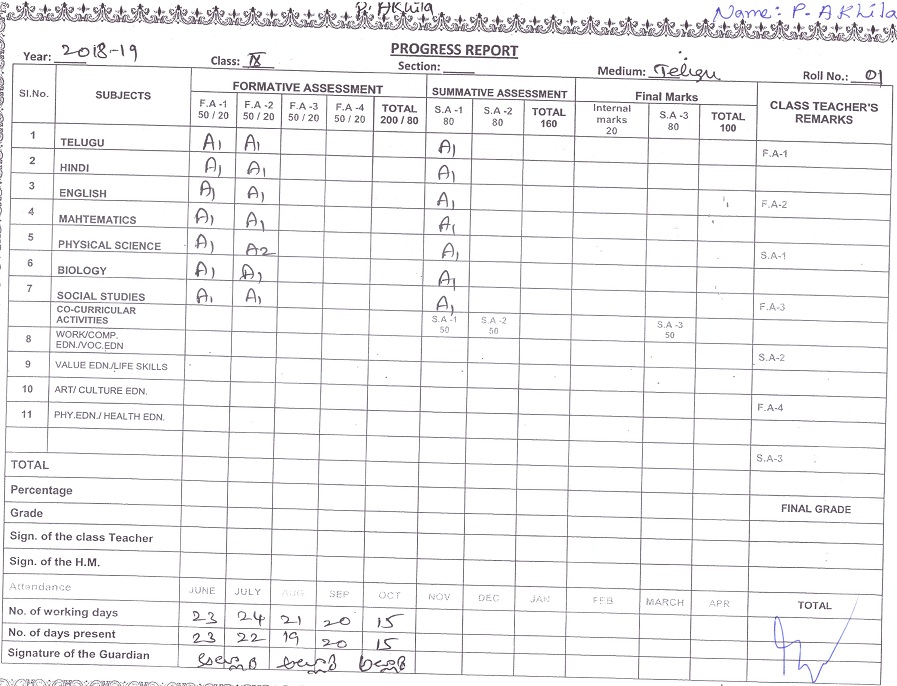 P. AKhila
Name: P. AKhila
PROGRESS REPORT
Year: 2018-19 Class: IX Section: Medium: Telugu Roll No.: 01
Sl.No. SUBJECTS FORMATIVE ASSESSMENT SUMMATIVE ASSESSMENT Final Marks CLASS TEACHER'S REMARKS
F.A -1 50 / 20 F.A -2 50 / 20 F.A -3 50 / 20 F.A -4 50 / 20 TOTAL 200 / 80 S.A -1 80 S.A -2 80 TOTAL 160 Internal marks 20 S.A -3 80 TOTAL 100
1 TELUGU A1 A1 A1 F.A-1
2 HINDI A1 A1 A1
3 ENGLISH A1 A1 A1 F.A-2
4 MAHTEMATICS A1 A1 A1
5 PHYSICAL SCIENCE A1 A2 A1 S.A-1
6 BIOLOGY A1 A1 A1
7 SOCIAL STUDIES A1 A1 A1 F.A-3
CO-CURRICULAR ACTIVITIES S.A -1 50 S.A -2 50 S.A -3 50
8 WORK/COMP. EDN./VOC.EDN S.A-2
9 VALUE EDN./LIFE SKILLS
10 ART/ CULTURE EDN. F.A-4
11 PHY.EDN./ HEALTH EDN.
S.A-3
TOTAL
Percentage
Grade FINAL GRADE
Sign. of the class Teacher
Sign. of the H.M.
Attendance JUNE JULY AUG SEP OCT NOV DEC JAN FEB MARCH APR TOTAL
No. of working days 23 24 21 20 15
No. of days present 23 22 19 20 15
Signature of the Guardian